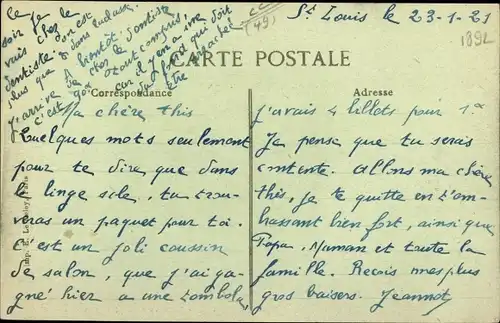 St Louis le 23-1-21
1892
(49)
CARTE POSTALE
Correspondance
Adresse
Ma chère this
Quelques mots seulement
pour te dire que dans
le linge sale, tu trou-
veras un paquet pour toi.
C'est un joli coussin
de salon, que j'ai ga-
gné hier a une tombola,
j'avais 4 billets pour 1
Je pense que tu seras
contente. Allons ma chère
this, je te quitte en t'em-
brassant bien fort, ainsi que
Papa, Maman et toute la
famille. Reçois mes plus
gros baisers. Jeannot
ce soir je
vais chez le
dentiste.
plus que
j'arrive
A bientôt.
C'est